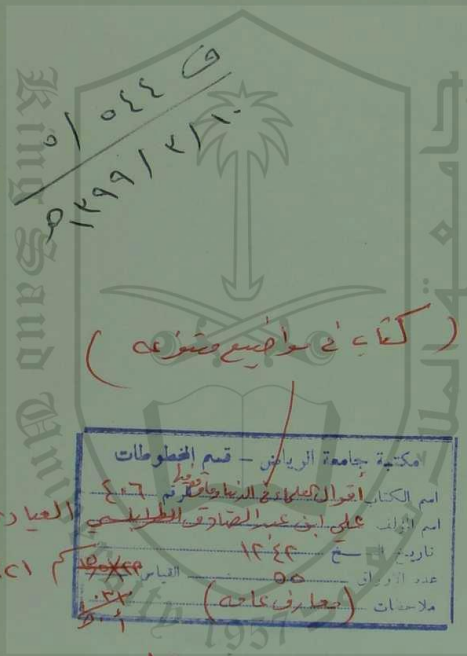 ف ٥٤٤ / ٥
١٣٩٩ / ٣ / ١٠ هـ
( كتاب في مواضيع متنوعه )
مكتبة جامعة الرياض - قسم المخطوطات
اسم الكتاب أقوال العلماء في الدنيا الرقم ٤٠٦
اسم المؤلف علي ابن عبد الصادق الطرابلسي العياد
تاريخ النسخ ١٢٤٢
عدد الأوراق ٥٥ القياس سم ٢١
ملاحظات (معارف عامه)
King Saud University
1957